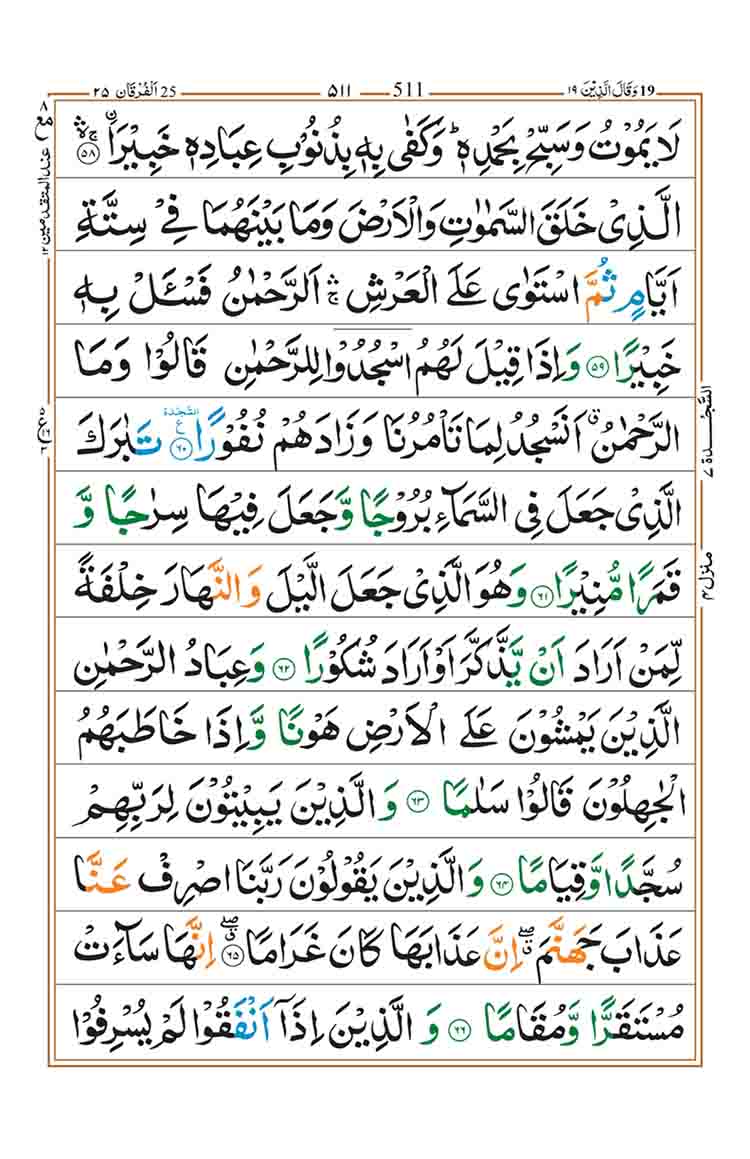 19 وَقَالَ الَّذِيْنَ ١٩ 511 ٥١١ 25 اَلْفُرْقَان ٢٥
لَا يَمُوْتُ وَسَبِّحْ بِحَمْدِهٖ ؕ وَكَفٰى بِهٖ بِذُنُوْبِ عِبَادِهٖ خَبِيْرَا ۛۚ ۙ ٥٨
الَّذِيْ خَلَقَ السَّمٰوٰتِ وَالْاَرْضَ وَمَا بَيْنَهُمَا فِيْ سِتَّةِ
اَيَّامٍ ثُمَّ اسْتَوٰى عَلَى الْعَرْشِ ۛۚ اَلرَّحْمٰنُ فَسْـَٔلْ بِهٖ
خَبِيْرًا ٥٩ وَاِذَا قِيْلَ لَهُمُ اسْجُدُوْا لِلرَّحْمٰنِ قَالُوْا وَمَا
الرَّحْمٰنُ ۗ اَنَسْجُدُ لِمَا تَاْمُرُنَا وَزَادَهُمْ نُفُوْرًا ٦٠ السَّجْدَة ع تَبٰرَكَ
الَّذِيْ جَعَلَ فِى السَّمَآءِ بُرُوْجًا وَّجَعَلَ فِيْهَا سِرٰجًا وَّ
قَمَرًا مُّنِيْرًا ٦١ وَهُوَ الَّذِيْ جَعَلَ الَّيْلَ وَالنَّهَارَ خِلْفَةً
لِّمَنْ اَرَادَ اَنْ يَّذَّكَّرَ اَوْ اَرَادَ شُكُوْرًا ٦٢ وَعِبَادُ الرَّحْمٰنِ
الَّذِيْنَ يَمْشُوْنَ عَلَى الْاَرْضِ هَوْنًا وَّاِذَا خَاطَبَهُمُ
الْجٰهِلُوْنَ قَالُوْا سَلٰمًا ٦٣ وَالَّذِيْنَ يَبِيْتُوْنَ لِرَبِّهِمْ
سُجَّدًا وَّقِيَامًا ٦٤ وَالَّذِيْنَ يَقُوْلُوْنَ رَبَّنَا اصْرِفْ عَنَّا
عَذَابَ جَهَنَّمَ ۖۗ اِنَّ عَذَابَهَا كَانَ غَرَامًا ۖۗ ٦٥ اِنَّهَا سَآءَتْ
مُسْتَقَرًّا وَّمُقَامًا ٦٦ وَالَّذِيْنَ اِذَآ اَنْفَقُوْا لَمْ يُسْرِفُوْا
٨
مع
عند المتقدمين ١٢
السَّجْدَة ٧
منزل ٤